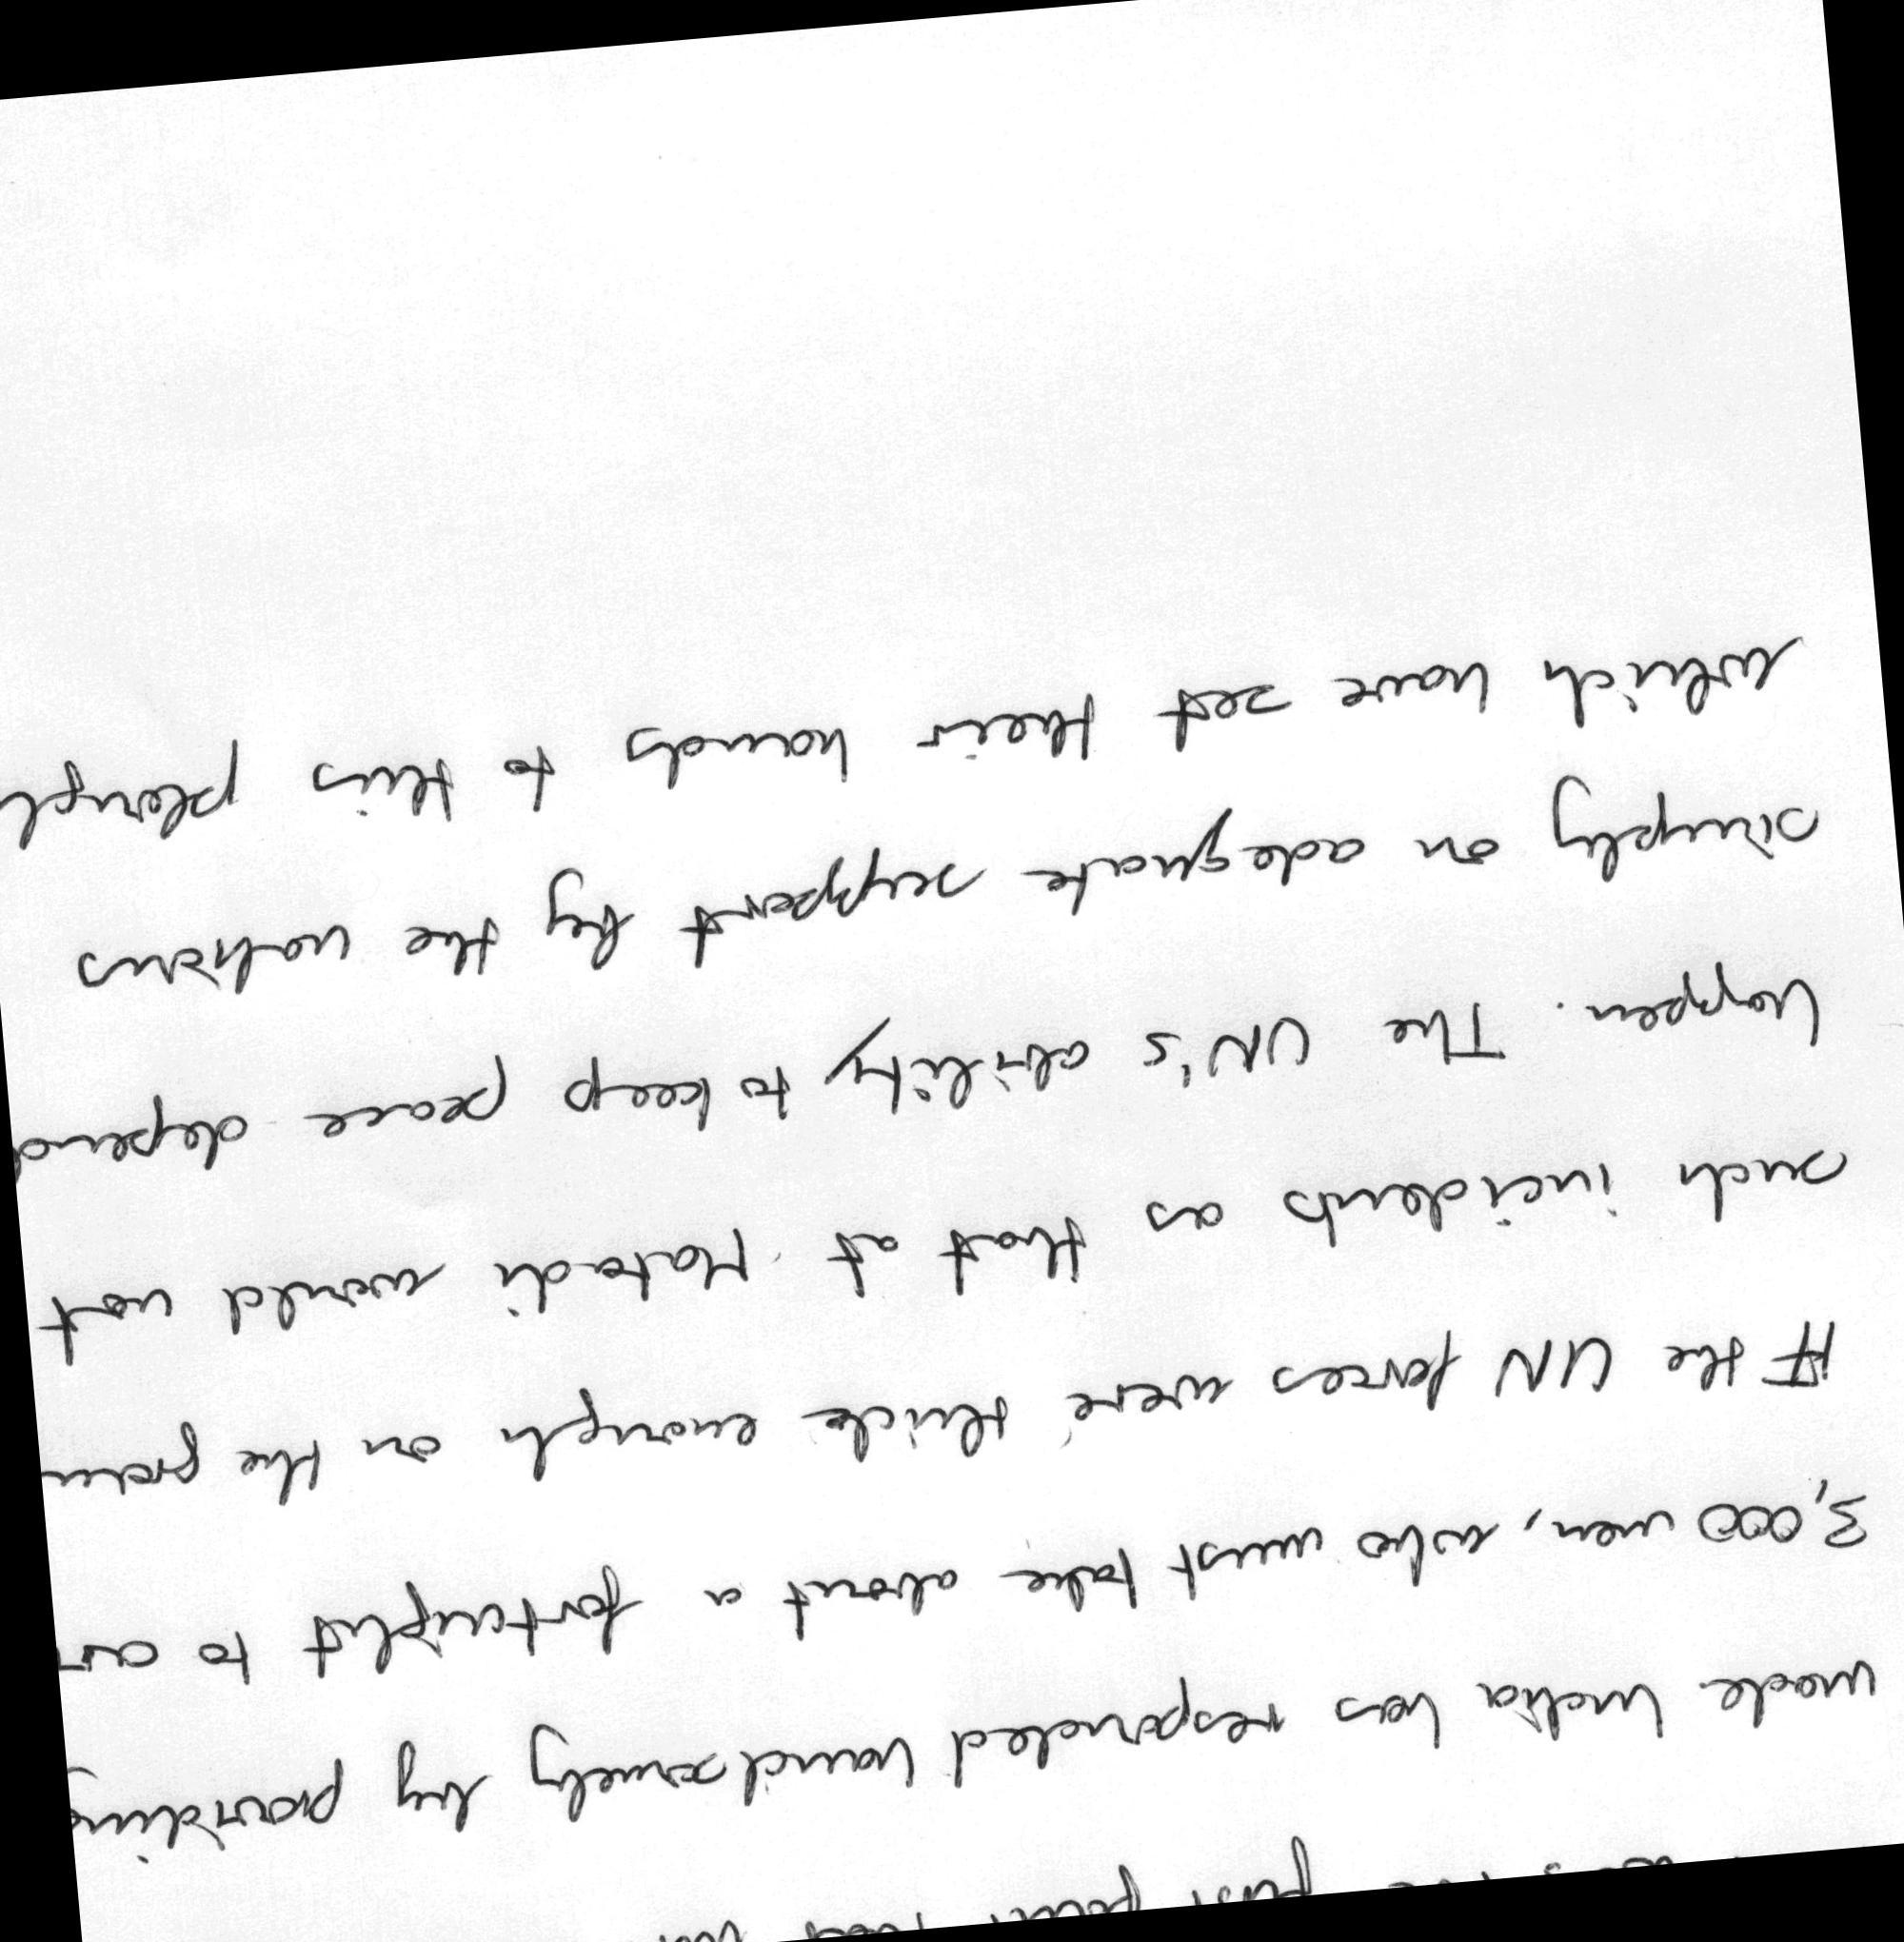 made India has responded handsomely by providing
3,000 men, who must take about a fortnight to
If the UN forces were thick enough on the
such incidents as that at Matadi would not
happen. The UN's ability to keep peace depend
simply on adequate support by the nations
which have set their hands to this plough